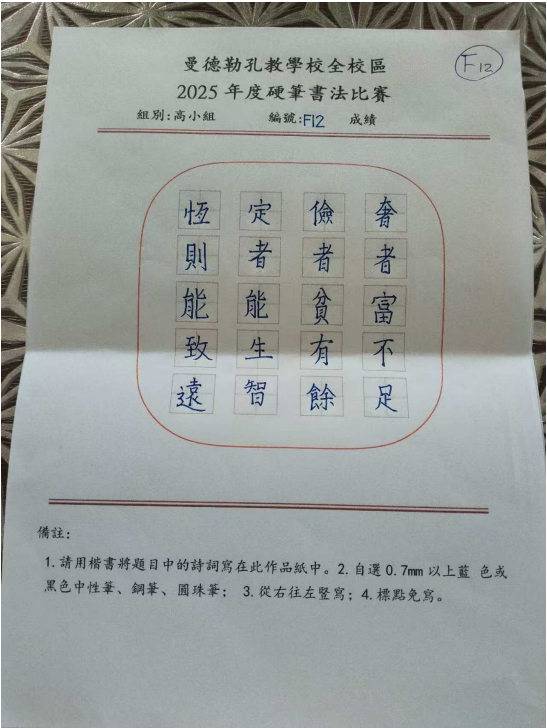 F12
曼德勒孔教學校全校區
2025 年度硬筆書法比賽
組別:高小組 編號:F12 成績
奢者富不足
儉者貧有餘
定者能生智
恆則能致遠
備註:
1.請用楷書將題目中的詩詞寫在此作品紙中。2.自選 0.7mm 以上藍 色或
黑色中性筆、鋼筆、圓珠筆; 3.從右往左豎寫;4.標點免寫。